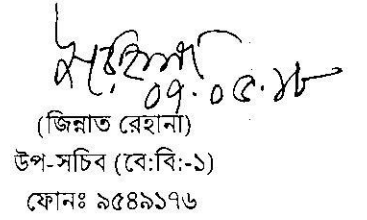 ০৭.০৫.১৮
(জিন্নাত রেহানা)
উপ-সচিব (বে:বি:-১)
ফোনঃ ৯৫৪৯১৭৬